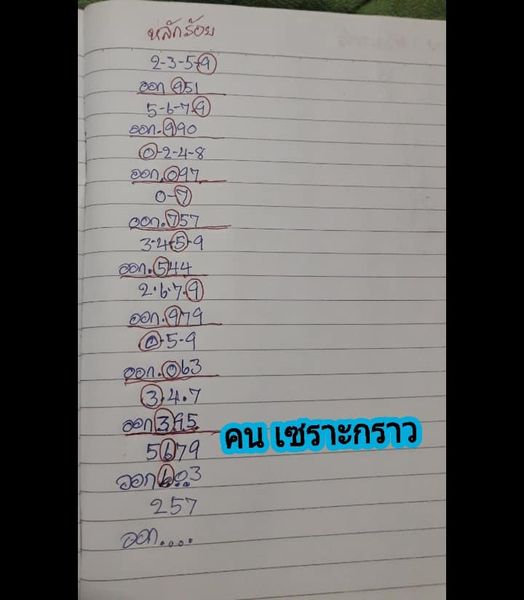 หลักร้อย
2-3-5-9
ออก 951
5-6-7-9
ออก.990
0-2-4-8
ออก.097
0-7
ออก.757
3-4-5-9
ออก.544
2.6.7.9
ออก.979
0-5-9
ออก.063
3.4.7
ออก395
คน เซราะกราว
5679
ออก603
257
ออก....